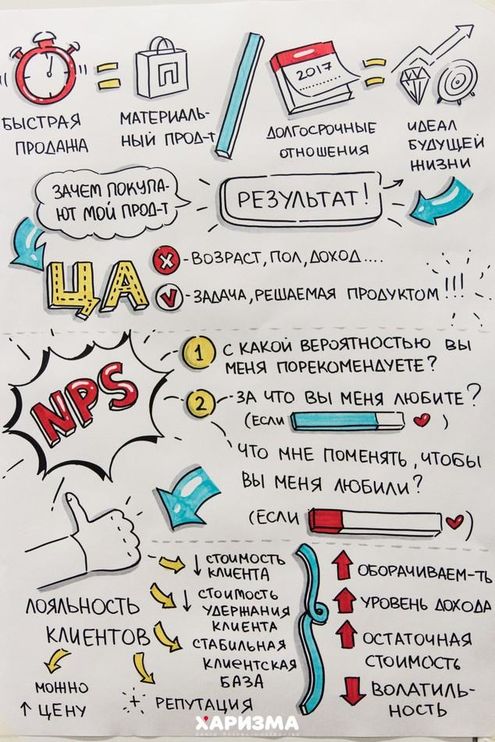 2017
П
БЫСТРАЯ
ПРОДАЖА
МАТЕРИАЛЬ-
НЫЙ ПРОД-Т
ДОЛГОСРОЧНЫЕ
ОТНОШЕНИЯ
ИДЕАЛ
БУДУЩЕЙ
ЖИЗНИ
ЗАЧЕМ ПОКУПА-
ЮТ МОЙ ПРОД-Т
РЕЗУЛЬТАТ!
ЦА
X - ВОЗРАСТ, ПОЛ, ДОХОД....
V - ЗАДАЧА, РЕШАЕМАЯ ПРОДУКТОМ!!!
NPS
1 С КАКОЙ ВЕРОЯТНОСТЬЮ ВЫ
МЕНЯ ПОРЕКОМЕНДУЕТЕ?
2 - ЗА ЧТО ВЫ МЕНЯ ЛЮБИТЕ?
(ЕСЛИ )
ЧТО МНЕ ПОМЕНЯТЬ, ЧТОБЫ
ВЫ МЕНЯ ЛЮБИЛИ?
(ЕСЛИ )
ЛОЯЛЬНОСТЬ
КЛИЕНТОВ
МОЖНО
↑ ЦЕНУ
+ РЕПУТАЦИЯ
↓ СТОИМОСТЬ
КЛИЕНТА
↓ СТОИМОСТЬ
УДЕРЖАНИЯ
КЛИЕНТА
СТАБИЛЬНАЯ
КЛИЕНТСКАЯ
БАЗА
ОБОРАЧИВАЕМ-ТЬ
УРОВЕНЬ ДОХОДА
ОСТАТОЧНАЯ
СТОИМОСТЬ
ВОЛАТИЛЬ-
НОСТЬ
ХАРИЗМА